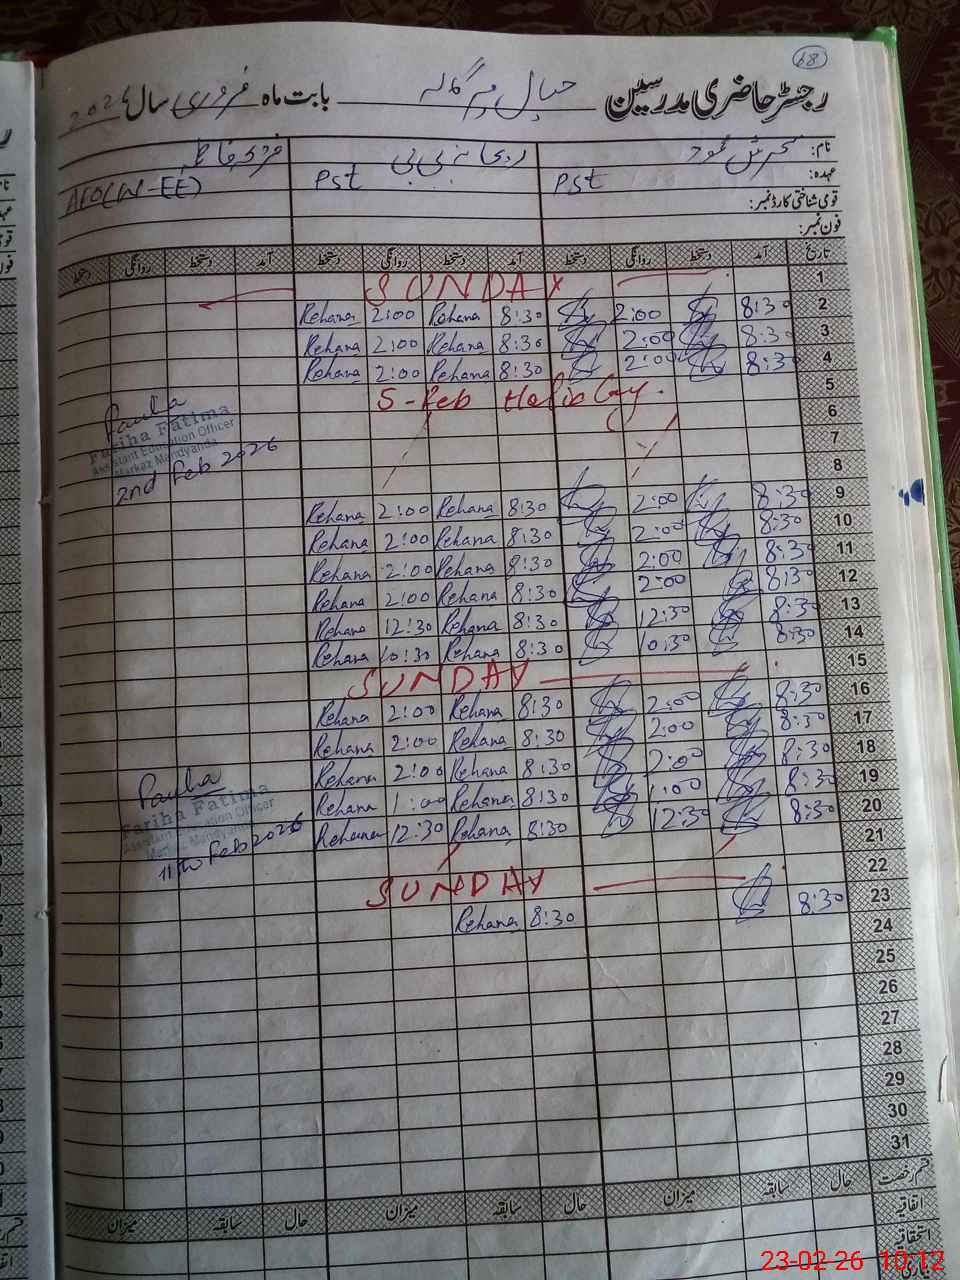 68
رجسٹر حاضری مدرسین بابت ماہ فروری سال 2026
نام: سحرش محمود
عہدہ: Pst Pst AEO(W-EE)
قومی شناختی کارڈ نمبر:
فون نمبر:
تاریخ آمد دستخط روانگی دستخط آمد دستخط روانگی دستخط آمد دستخط روانگی دستخط
SUNDAY 1
Rehana 2:00 Rehana 8:30 2:00 8:30 2
Rehana 2:00 Rehana 8:30 2:00 8:30 3
Rehana 2:00 Rehana 8:30 2:00 8:30 4
5-Feb Holiday. 5
6
7
8
Fariha Fatima
Assistant Education Officer
Markaz Mandyanda
2nd Feb 2026
Rehana 2:00 Rehana 8:30 2:00 8:30 9
Rehana 2:00 Rehana 8:30 2:00 8:30 10
Rehana 2:00 Rehana 8:30 2:00 8:30 11
Rehana 2:00 Rehana 8:30 2:00 8:30 12
Rehana 12:30 Rehana 8:30 12:30 8:30 13
Rehana 10:30 Rehana 8:30 10:30 8:30 14
SUNDAY 15
Rehana 2:00 Rehana 8:30 2:00 8:30 16
Rehana 2:00 Rehana 8:30 2:00 8:30 17
Rehana 2:00 Rehana 8:30 2:00 8:30 18
Rehana 1:00 Rehana 8:30 1:00 8:30 19
Rehana 12:30 Rehana 8:30 12:30 8:30 20
21
Fariha Fatima
Assistant Education Officer
Markaz Mandyanda
11th Feb 2026
SUNDAY 22
Rehana 8:30 8:30 23
24
25
26
27
28
29
30
31
قسم رخصت حال سابقہ میزان حال سابقہ میزان حال سابقہ میزان
اتفاقیہ
استحقاقیہ
23-02-26 10:12